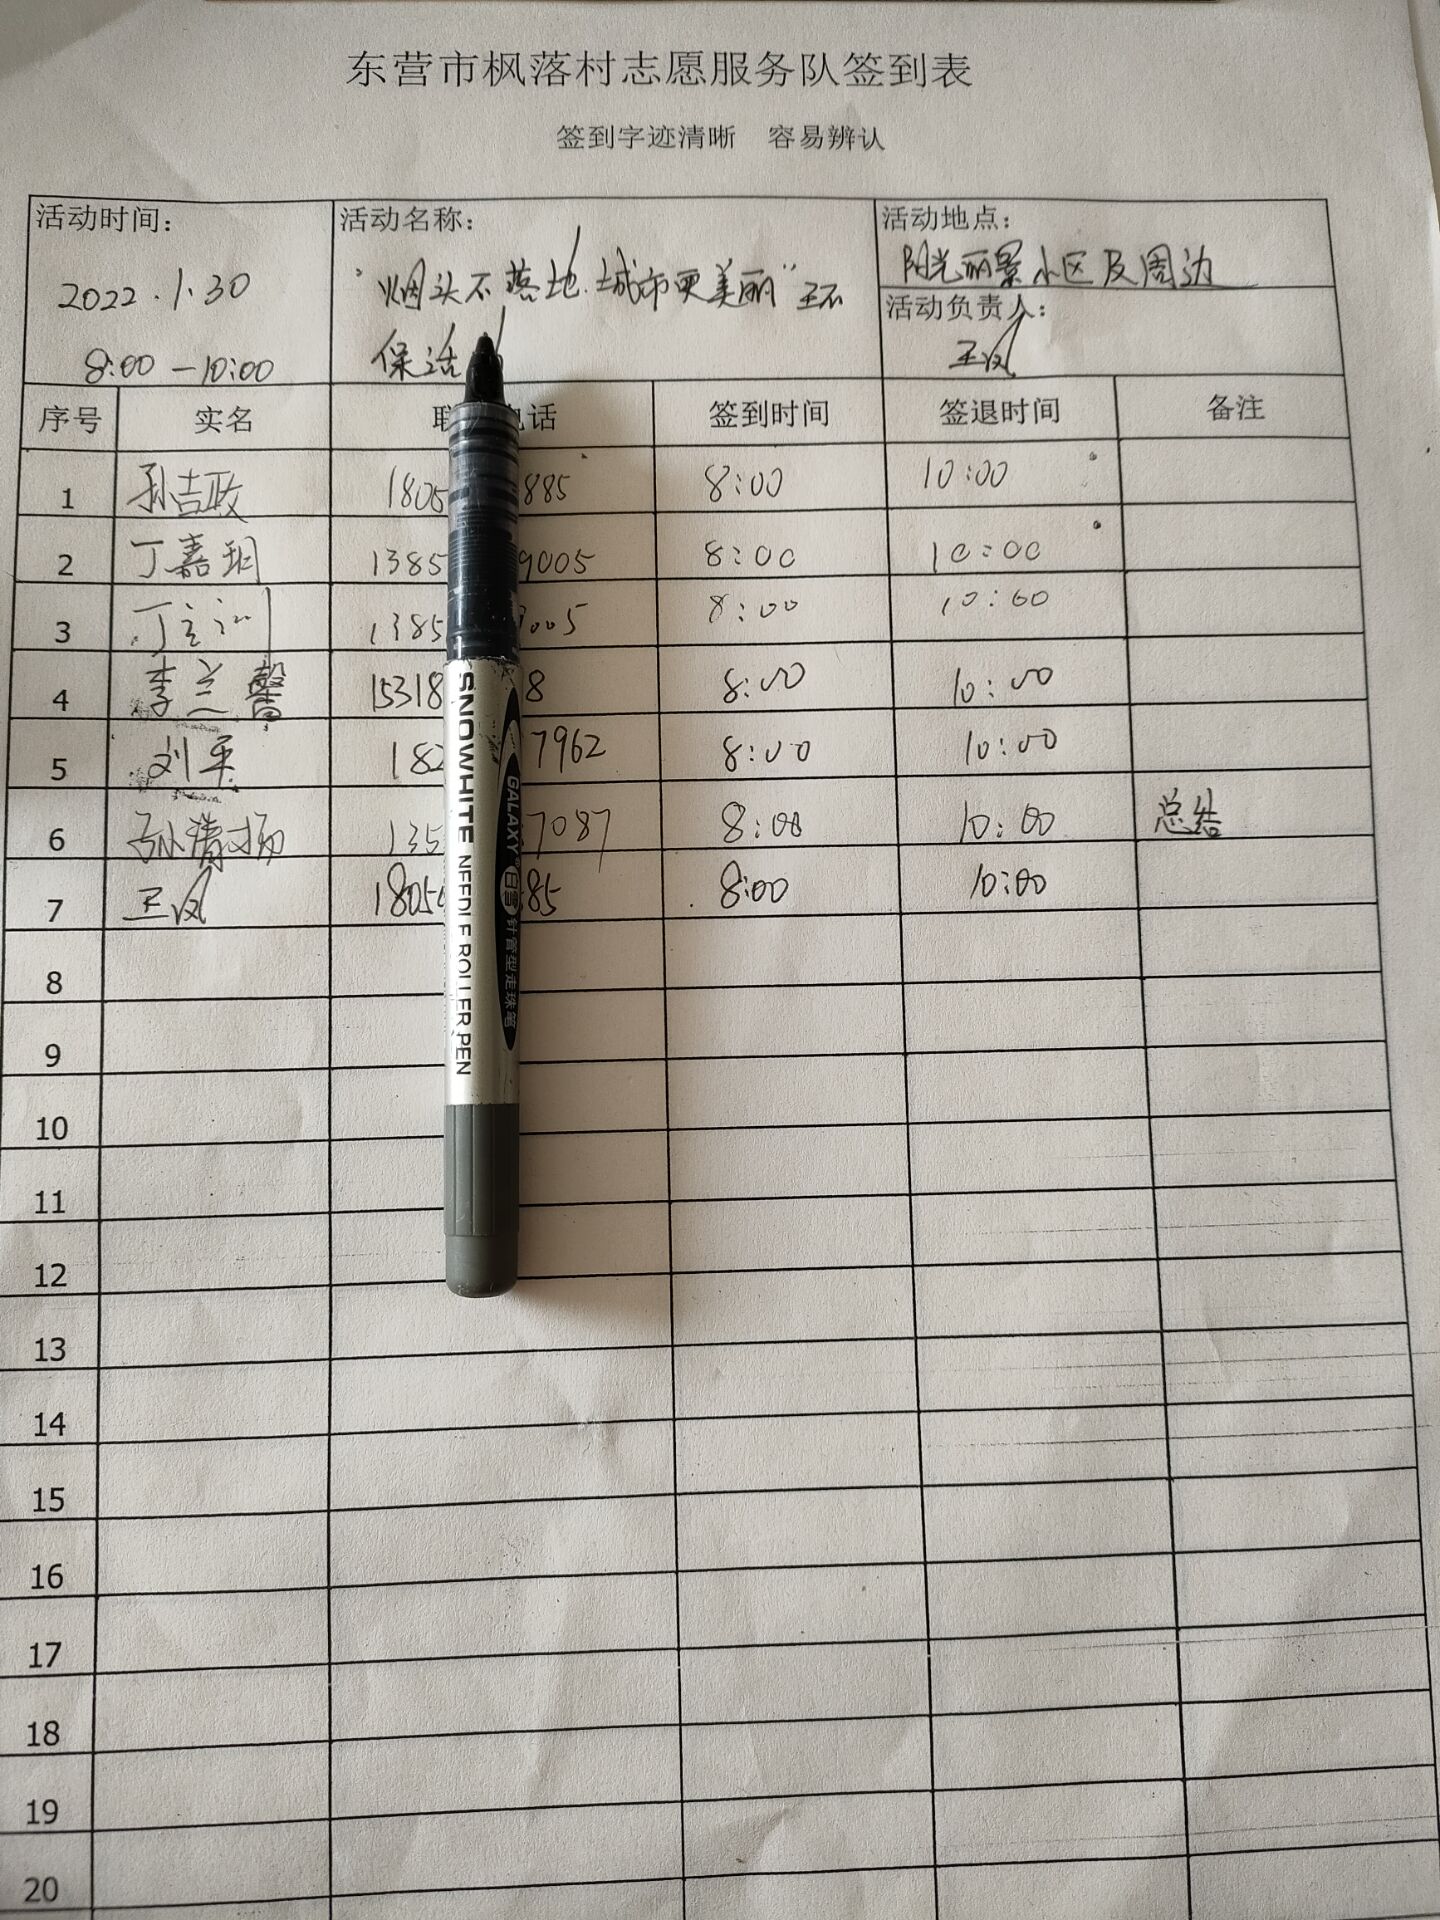 东营市枫落村志愿服务队签到表
签到字迹清晰 容易辨认
活动时间： 活动名称： 活动地点：
阳光丽景小区及周边
2022.1.30 "烟头不落地.城市更美丽"环
活动负责人：
王凤
8:00—10:00 保活
序号 实名 联 电话 签到时间 签退时间 备注
1 孙吉政 1805 885 8:00 10:00
2 丁嘉玥 1385 9005 8:00 10:00
3 丁立训 1385 9005 8:00 10:00
4 李兰馨 15318 8 8:00 10:00
5 刘平 182 7962 8:00 10:00
6 孙清扬 135 7087 8:00 10:00 总结
7 王凤 1805 85 8:00 10:00
8
9
10
11
12
13
14
15
16
17
18
19
20
SNOWHITE NEEDLE ROLLER PEN
GALAXY 白雪 针管型走珠笔